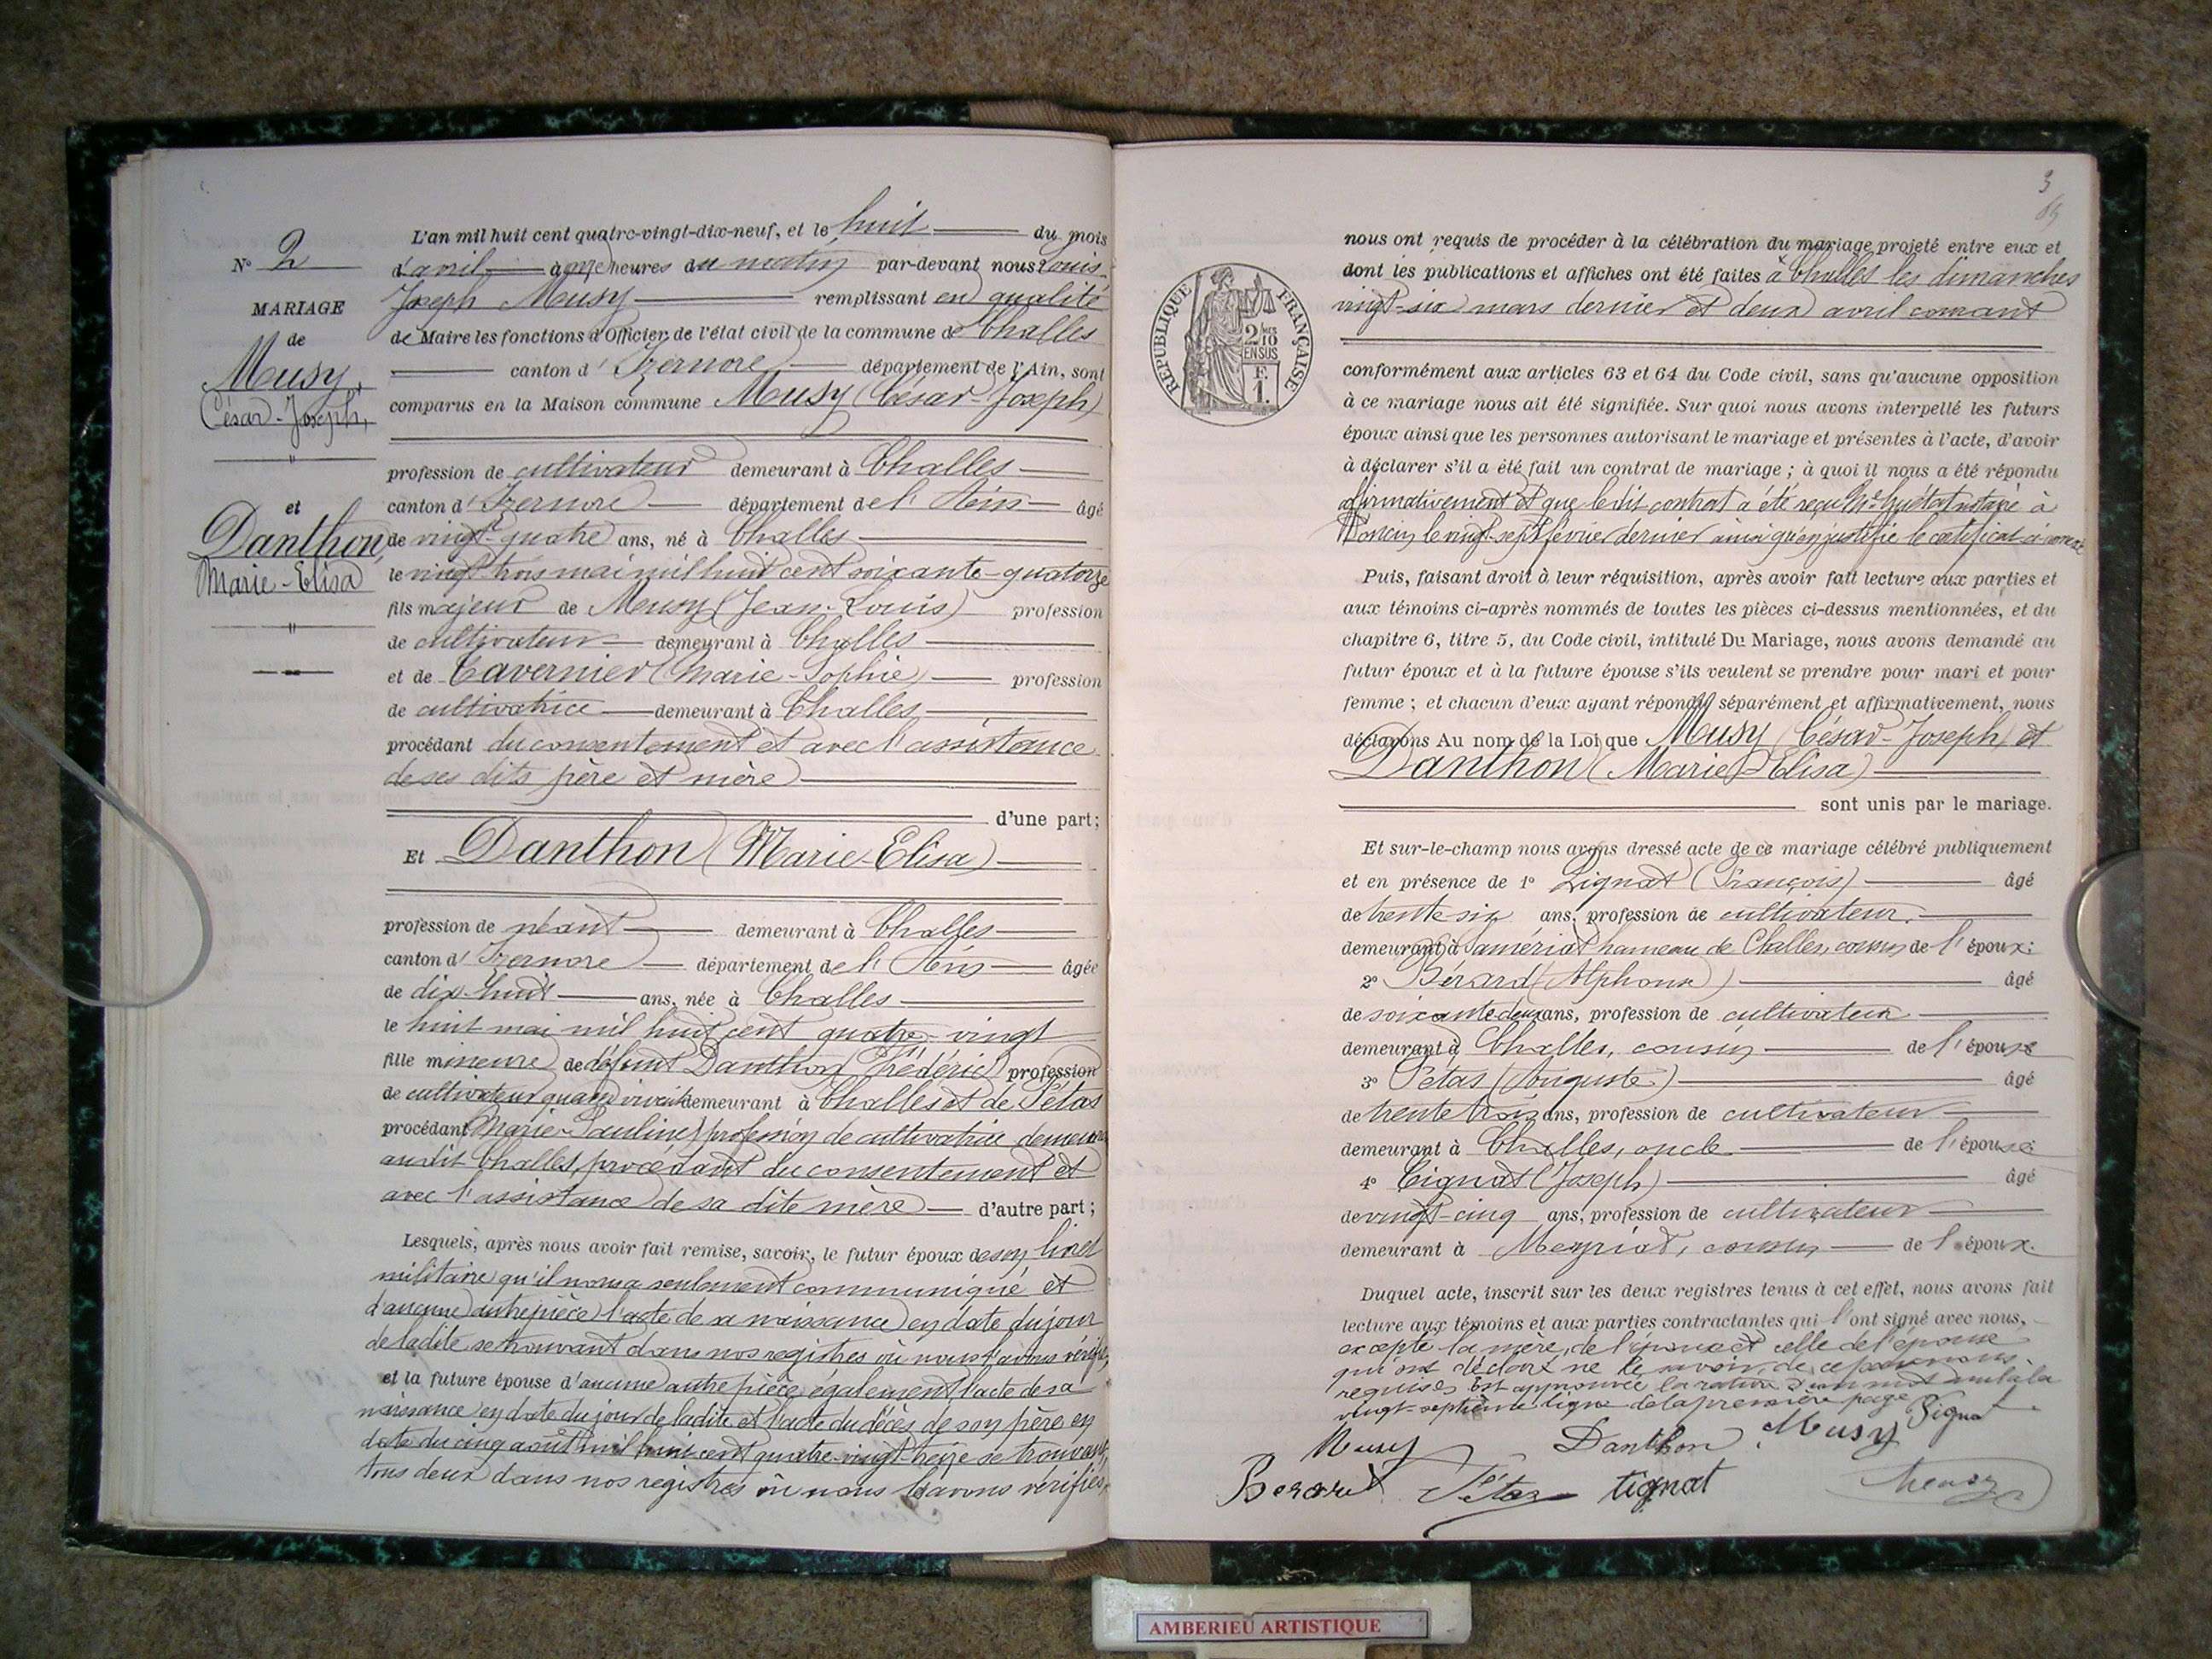 N° 2
MARIAGE
de
Musy,
César-Joseph,
et
Danthon,
Marie-Elisa
L'an mil huit cent quatre-vingt-dix-neuf, et le huit du mois
d'avril à onze heures du matin par-devant nous Louis-
Joseph Musy remplissant en qualité
de Maire les fonctions d'Officier de l'état civil de la commune de Challes
canton d'Izernore département de l'Ain, sont
comparus en la Maison commune Musy (César-Joseph)
profession de cultivateur demeurant à Challes
canton d'Izernore département de l'Ain âgé
de vingt-quatre ans, né à Challes
le vingt-trois mai mil huit cent soixante-quatorze
fils majeur de Musy (Jean-Louis) profession
de cultivateur demeurant à Challes
et de Tavernier (Marie-Sophie) profession
de cultivatrice demeurant à Challes
procédant du consentement et avec l'assistance
de ses dits père et mère
d'une part;
Et Danthon (Marie-Elisa)
profession de néant demeurant à Challes
canton d'Izernore département de l'Ain âgée
de dix-huit ans, née à Challes
le huit mai mil huit cent quatre-vingt
fille mineure de défunt Danthon (Frédéric) profession
de cultivateur quand vivait demeurant à Challes et de Pétas
procédant (Marie-Pauline) profession de cultivatrice demeurant
audit Challes, procédant du consentement et
avec l'assistance de sa dite mère d'autre part;
Lesquels, après nous avoir fait remise, savoir, le futur époux de son livret
militaire qu'il nous a seulement communiqué et
d'aucune autre pièce l'acte de sa naissance en date du jour
de ladite se trouvant dans nos registres où nous l'avons vérifié,
et la future épouse d'aucune autre pièce également l'acte de sa
naissance en date du jour de ladite et l'acte du décès de son père en
date du cinq août mil huit cent quatre-vingt-treize se trouvant
tous deux dans nos registres où nous les avons vérifiés,
3
RÉPUBLIQUE FRANÇAISE
2/10
EN SUS
F.
1.
nous ont requis de procéder à la célébration du mariage projeté entre eux et
dont les publications et affiches ont été faites à Challes les dimanches
vingt-six mars dernier et deux avril courant
conformément aux articles 63 et 64 du Code civil, sans qu'aucune opposition
à ce mariage nous ait été signifiée. Sur quoi nous avons interpellé les futurs
époux ainsi que les personnes autorisant le mariage et présentes à l'acte, d'avoir
à déclarer s'il a été fait un contrat de mariage; à quoi il nous a été répondu
affirmativement et que le dit contrat a été reçu notaire à
Poncin le vingt-sept février dernier ainsi qu'en justifie le certificat ci-annexé
Puis, faisant droit à leur réquisition, après avoir fait lecture aux parties et
aux témoins ci-après nommés de toutes les pièces ci-dessus mentionnées, et du
chapitre 6, titre 5, du Code civil, intitulé Du Mariage, nous avons demandé au
futur époux et à la future épouse s'ils veulent se prendre pour mari et pour
femme; et chacun d'eux ayant répondu séparément et affirmativement, nous
déclarons Au nom de la Loi que Musy (César-Joseph) et
Danthon (Marie-Elisa)
sont unis par le mariage.
Et sur-le-champ nous avons dressé acte de ce mariage célébré publiquement
et en présence de 1° (François) âgé
de trente six ans, profession de cultivateur.
demeurant à hameau de Challes, cousin de l'époux;
2° Bérard (Alphonse) âgé
de soixante deux ans, profession de cultivateur
demeurant à Challes, cousin de l'épouse
3° Pétas (Auguste) âgé
de trente trois ans, profession de cultivateur
demeurant à Challes, oncle de l'épouse
4° Tignat (Joseph) âgé
de vingt-cinq ans, profession de cultivateur
demeurant à Meyriat, cousin de l'époux.
Duquel acte, inscrit sur les deux registres tenus à cet effet, nous avons fait
lecture aux témoins et aux parties contractantes qui l'ont signé avec nous,
excepté la mère de l'époux et celle de l'épouse
qui ont déclaré ne le savoir, de ce par nous
requises. Est approuvée la rature d'un mot nul à la
vingt-septième ligne de la première page
Musy Danthon Musy
Berard Pétas tignat Musy
AMBERIEU ARTISTIQUE